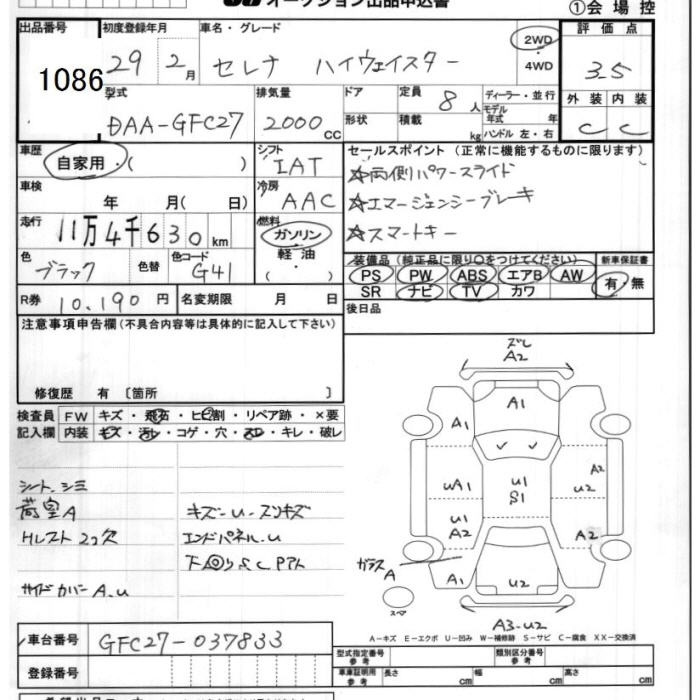 オークション出品申込書
①会場控
出品番号 初度登録年月 車名・グレード 評価点
1086 29年 2月 セレナ ハイウェイスター 2WD 4WD 3.5
型式 排気量 ドア 定員 8人 ディーラー・並行 外装 内装
DAA-GFC27 2000cc 形状 積載 kg モデル年式 年 ハンドル 左・右 C C
車歴 シフト セールスポイント (正常に機能するものに限ります)
自家用・( ) IAT ☆両側パワースライド
車検 年 月(日) 冷房 AAC ☆エマージェンシーブレーキ
走行 11万4千630km 燃料 ガソリン ☆スマートキー
軽油・( )
色 ブラック 色替 色コード G41
装備品(純正品に限り○をつけてください) 新車保証書
PS PW ABS エアB AW 有・無
SR ナビ TV カワ
R券 10,190円 名変期限 月 日 後日品
注意事項申告欄(不具合内容等は具体的に記入して下さい)
修復歴 有 〔箇所 〕
検査員 FW キズ・飛石・ヒビ割・リペア跡・×要
記入欄 内装 キズ・汚レ・コゲ・穴・スレ・キレ・破レ
シート、シミ
荷室A キズ-U-スリキズ
Hレスト2コ欠 エンドパネル、U
サイドカバーA、U
ズレ
A2
A1
A1 A1
UA1 U1 S1 A2 U2
U1 A2 A2
ガラス A
A1 U2
スペア
A3-U2
A-キズ E-エクボ U-凹み W-補修跡 S-サビ C-腐食 XX-交換済
車台番号 GFC27-037833
型式指定番号 参考 類別区分番号 参考
登録番号
車庫証明用 参考 長さ cm 幅 cm 高さ cm